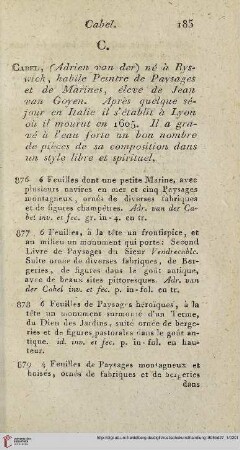 Cabel. 185
C.
CABEL, (Adrien van der) né à Rys-
wick, habile Peintre de Paysages
et de Marines, élève de Jean
van Goyen. Après quelque sé-
jour en Italie il s'établit à Lyon
où il mourut en 1605. Il a gra-
vé à l'eau forte un bon nombre
de pièces de sa composition dans
un style libre et spirituel.
876 6 Feuilles dont une petite Marine, avec
plusieurs navires en mer et cinq Paysages
montagneux, ornés de diverses fabriques
et de figures champêtres. Adr. van der Ca-
bel inv. et fec. gr. in-4. en tr.
877 6 Feuilles, à la tête un frontispice, et
au milieu un monument qui porte: Second
Livre de Paysages du Sieur Vendrecable.
Suite ornée de diverses fabriques, de Ber-
geries, de figures dans le goût antique,
avec de beaux sites pittoresques. Adr. van
der Cabel inv. et fec. p. in-fol. en tr.
878 6 Feuilles de Paysages héroïques, à la
tête un monument surmonté d'un Terme,
du Dieu des Jardins, suite ornée de berge-
ries et de figures pastorales dans le goût an-
tique. id. inv. et fec. p. in-fol. en hau-
teur.
879 4 Feuilles de Paysages montagneux et
boisés, ornés de fabriques et de bergeries
dans